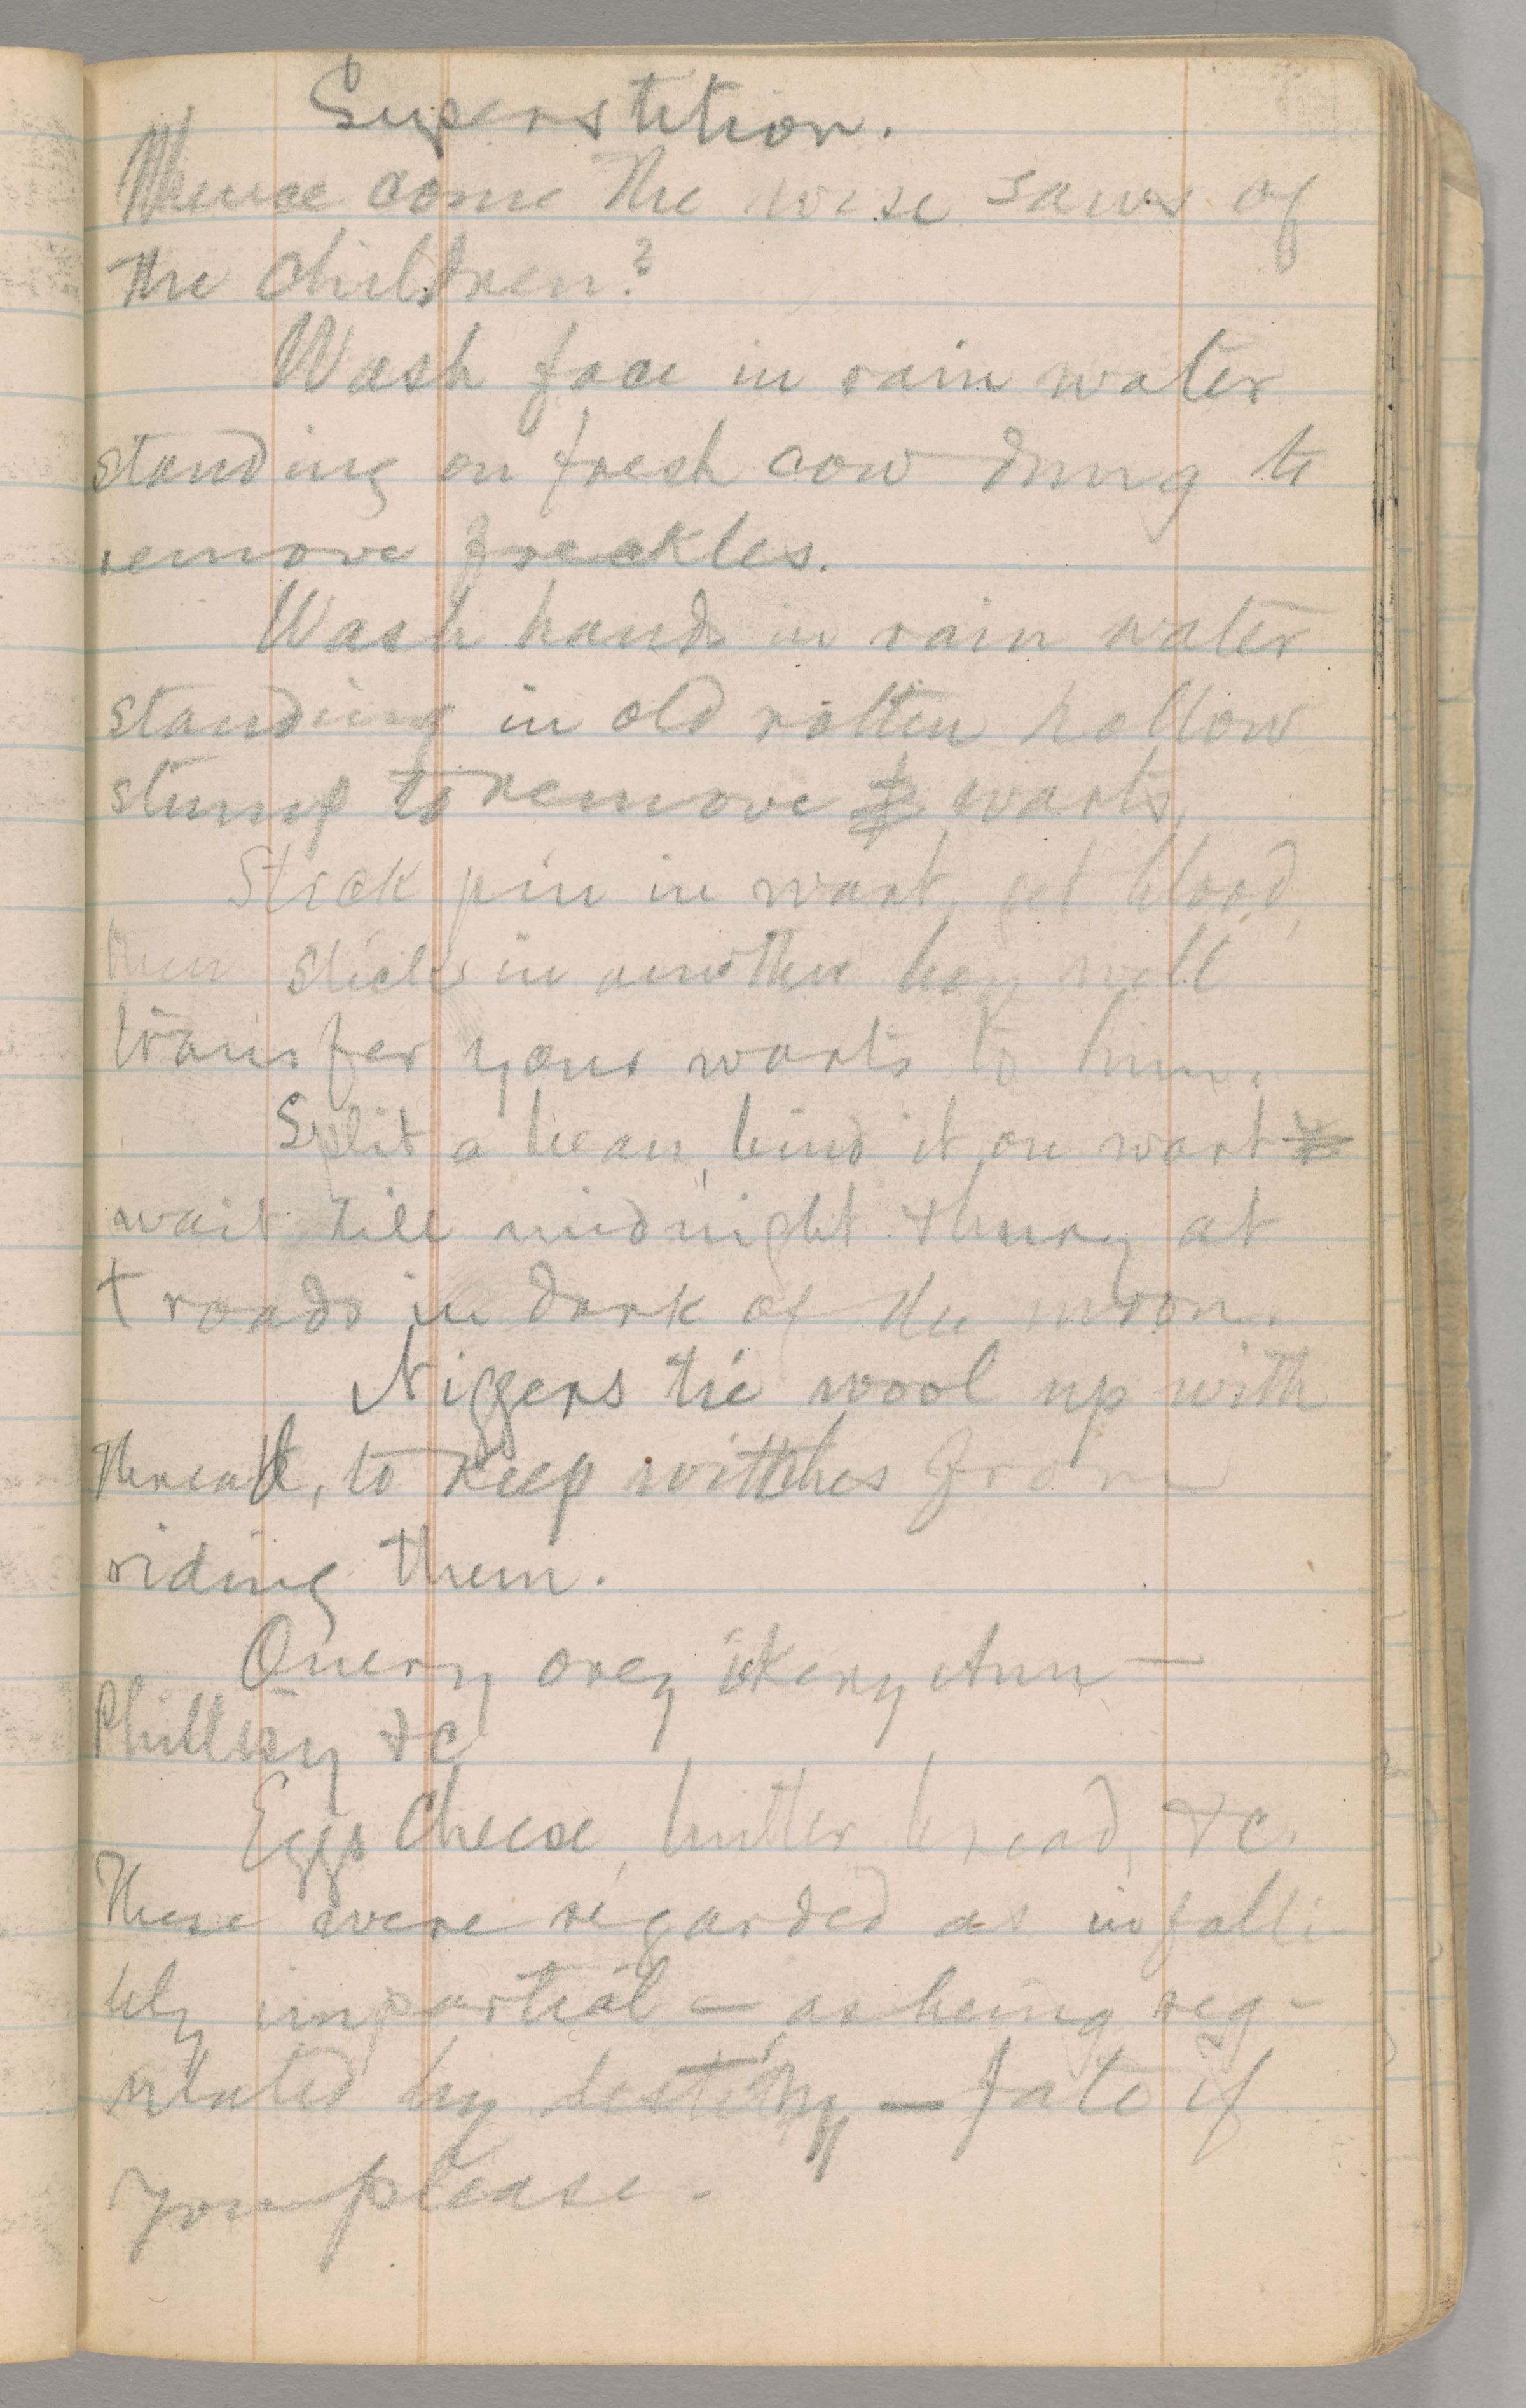 Superstition.
Whence come the wise saws of
the children?
Wash face in rain water
standing on fresh cow dung to
remove freckles.
Wash hands in rain water
standing in old rotten hollow
stump to remove warts,
Stick pin in wart, get blood,
then stick in another boy will
transfer your warts to him.
Split a bean, bind it on wart &
wait till midnight & bury at
X roads in dark of the moon.
Niggers tie wool up with
thread, to keep witches from
riding them.
Onery orey ickery Ann—
Phillisy &c
Eggs cheese, butter bread, &c.
These were regarded as infalli-
bly impartial — as being reg-
ulated by destiny — fate if
you please.